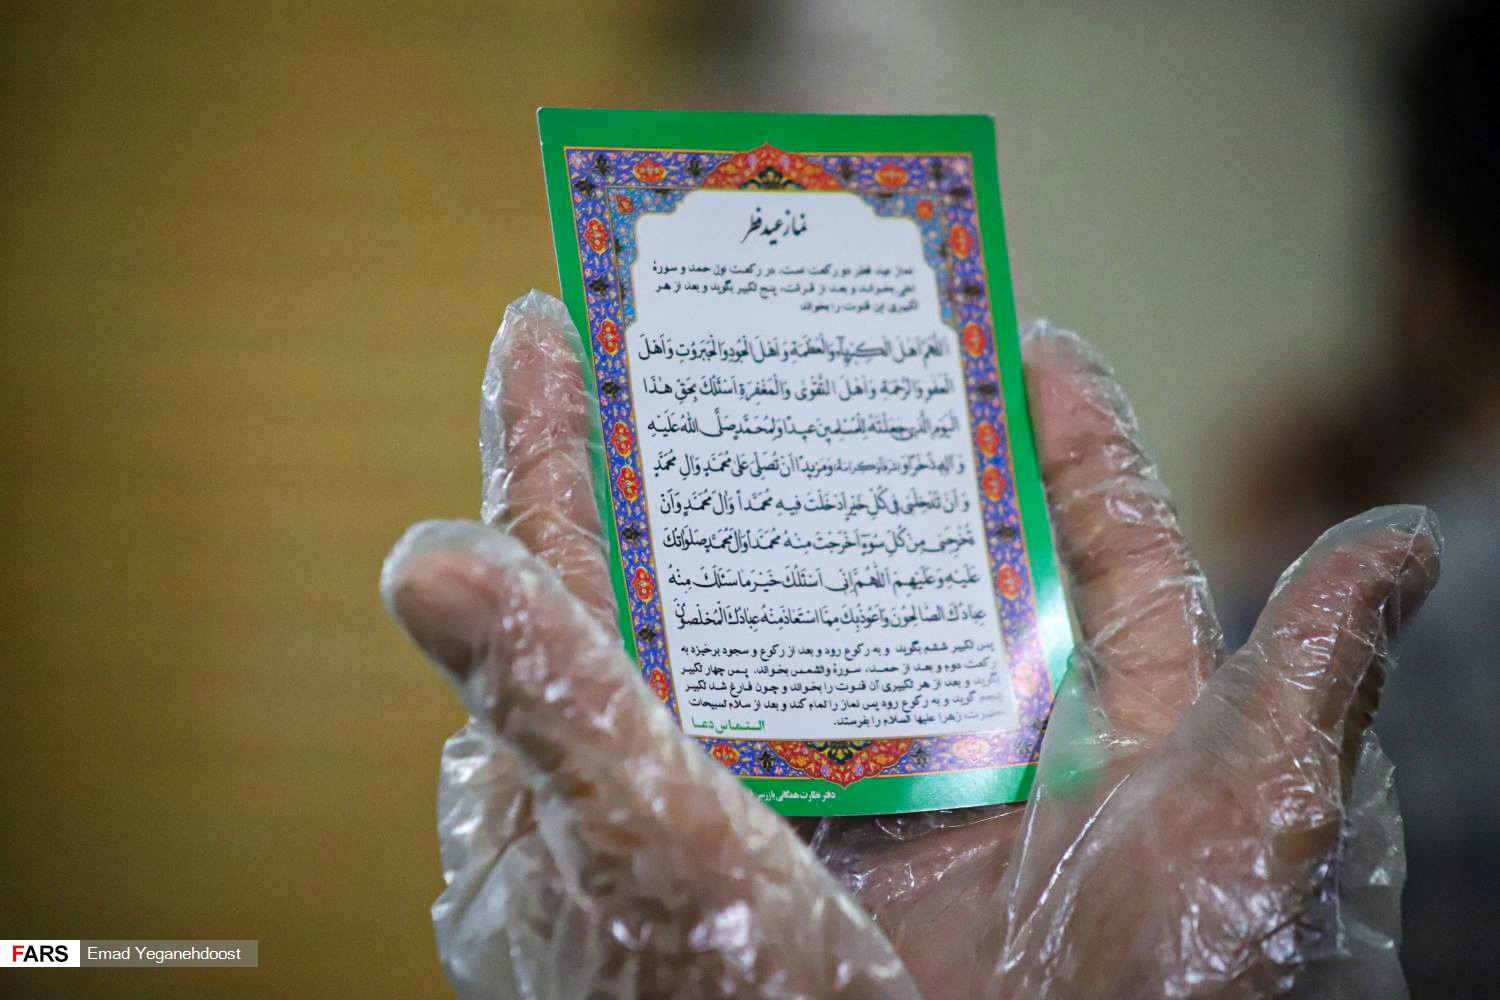 نماز عید فطر
نماز عید فطر دو رکعت است، در رکعت اول حمد و سورهٔ
اعلی بخواند و بعد از قرائت، پنج تکبیر بگوید و بعد از هر
تکبیری این قنوت را بخواند
اَللّٰهُمَّ اَهْلَ الْكِبْرِيٰآءِ وَالْعَظَمَةِ وَ اَهْلَ الْجُودِ وَ الْجَبَرُوتِ وَ اَهْلَ
الْعَفْوِ وَالرَّحْمَةِ وَ اَهْلَ التَّقْوٰى وَالْمَغْفِرَةِ اَسْئَلُكَ بِحَقِّ هٰذَا
الْيَوْمِ الَّذِى جَعَلْتَهُ لِلْمُسْلِمِينَ عِيدًا وَ لِمُحَمَّدٍ صَلَّى اللهُ عَلَيْهِ
وَ آلِهِ ذُخْرًا وَ شَرَفًا وَ كَرَامَةً وَ مَزِيدًا اَنْ تُصَلِّىَ عَلىٰ مُحَمَّدٍ وَ آلِ مُحَمَّدٍ
وَ اَنْ تُدْخِلَنِى فِى كُلِّ خَيْرٍ اَدْخَلْتَ فِيهِ مُحَمَّداً وَ آلَ مُحَمَّدٍ وَ اَنْ
تُخْرِجَنِى مِنْ كُلِّ سُوٓءٍ اَخْرَجْتَ مِنْهُ مُحَمَّداً وَ آلَ مُحَمَّدٍ صَلَوَاتُكَ
عَلَيْهِ وَ عَلَيْهِمْ اَللّٰهُمَّ اِنِّى اَسْئَلُكَ خَيْرَ مَا سَئَلَكَ مِنْهُ
عِبَادُكَ الصَّالِحُونَ وَ اَعُوذُ بِكَ مِمَّا اسْتَعَاذَ مِنْهُ عِبَادُكَ الْمُخْلَصُونَ
پس تکبیر ششم بگوید و به رکوع رود و بعد از رکوع و سجود برخیزد به
رکعت دوم و بعد از حمد، سورهٔ والشمس بخواند. پس چهار تکبیر
گوید و بعد از هر تکبیری آن قنوت را بخواند و چون فارغ شد تکبیر
پنجم گوید و به رکوع رود پس نماز را تمام کند و بعد از سلام تسبیحات
حضرت زهرا علیها السلام را بفرستد.
التماس دعا
دفتر نظارت همگانی بازرسی
FARS
Emad Yeganehdoost